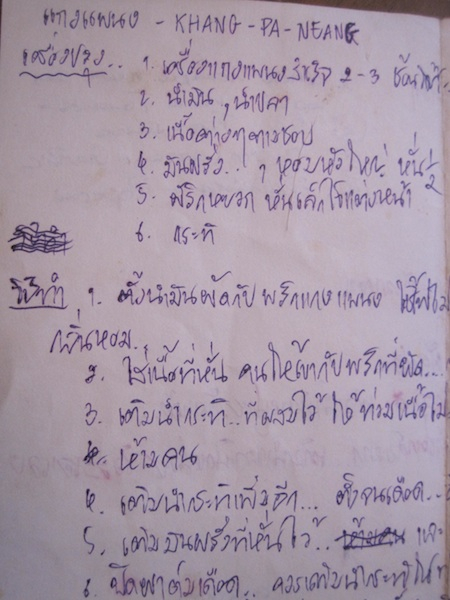 แกงแพนง - KHANG-PA-NEANG
เครื่องปรุง.. 1. เครื่องแกงแพนงสำเร็จ 2-3 ช้อนโต๊ะ
2. น้ำมัน, น้ำปลา
3. เนื้อต่างๆตามชอบ
4. มันฝรั่ง.. , หอมหัวใหญ่ หั่น 1/2
5. พริกหยวก หั่นเล็กโรยแต่งหน้า
6. กะทิ
วิธีทำ 1. ตั้งน้ำมันผัดกับพริกแกงแพนง
กลิ่นหอม..
2. ใส่เนื้อที่หั่น คนให้เข้ากับพริกที่ผัด...
3. เติมน้ำกะทิ..ที่ผสมไว้ ให้ท่วมเนื้อ
ห้ามคน
4. เติมน้ำกะทิเพิ่มอีก... ตั้งจนเดือด...
5. เติมมันฝรั่งที่หั่นไว้.. และ
6. ปิดฝาต้มเดือด.. ควรเติมน้ำกะทิ